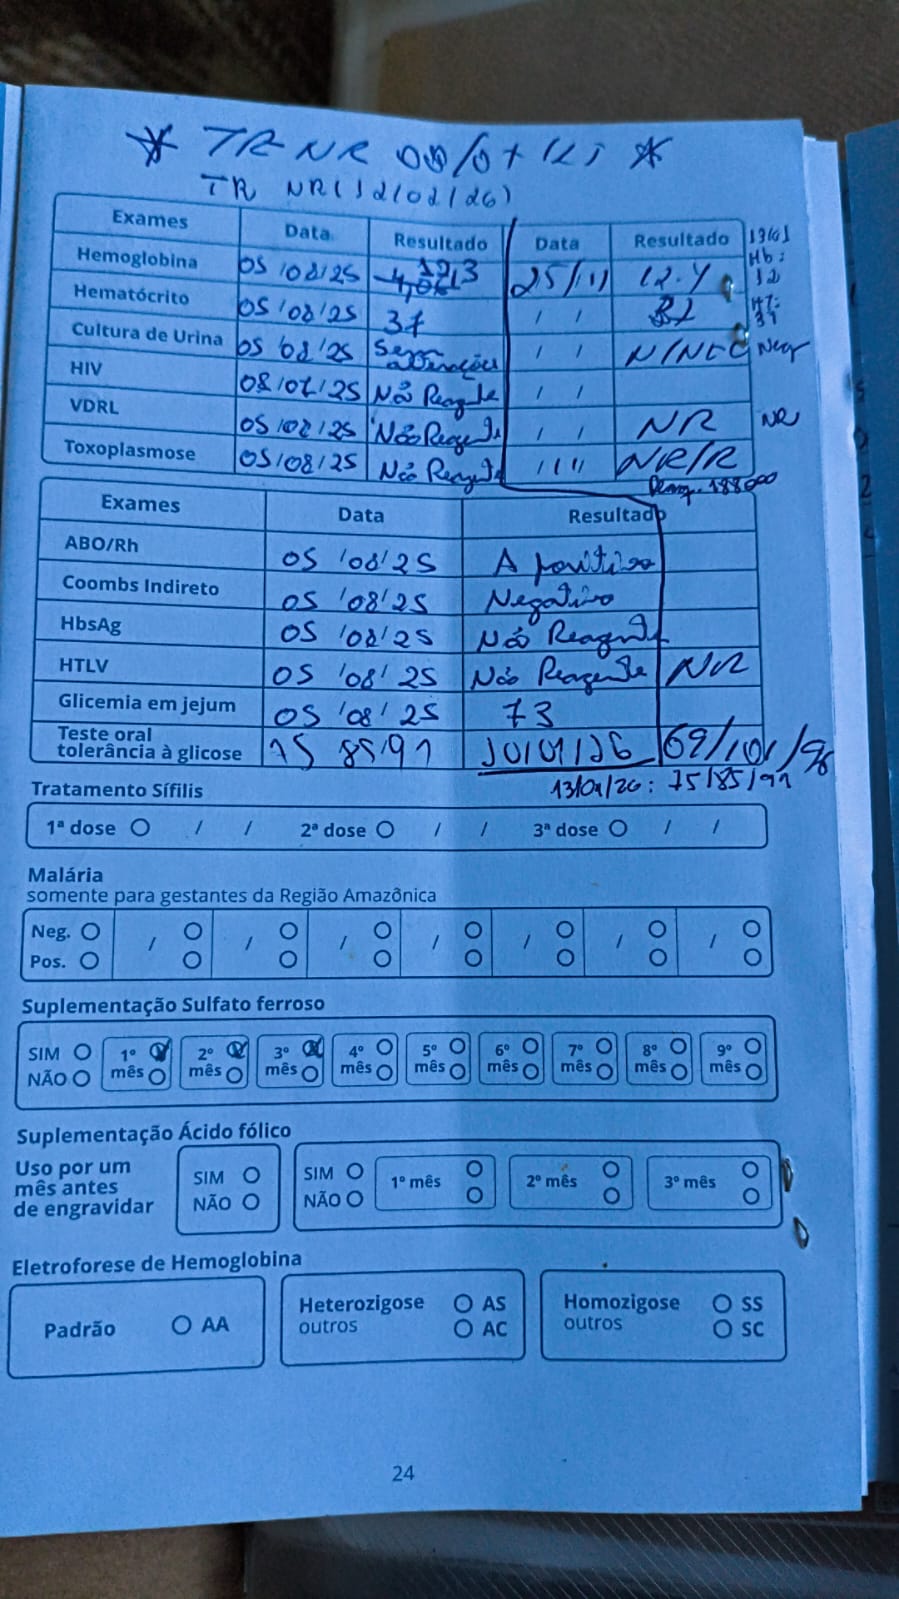 * TR NR 08/07/25 *
TR NR (12/02/26)
Exames Data Resultado Data Resultado 13/01
Hemoglobina 05/08/25 12,3 25/11 12.4 Hb: 12
Hematócrito 05/08/25 37 / / HT:
Cultura de Urina 05/08/25 Sem alterações / / N/NEG Neg
HIV 08/07/25 Não Reagente / /
VDRL 05/08/25 Não Reagente / / NR NR
Toxoplasmose 05/08/25 Não Reagente / / NR/R
188000
Exames Data Resultado
ABO/Rh 05/08/25 A positivo
Coombs Indireto 05/08/25 Negativo
HbsAg 05/08/25 Não Reagente
HTLV 05/08/25 Não Reagente NR
Glicemia em jejum 05/08/25 73
Teste oral
tolerância à glicose 75 85/91 10/01/26 69/101/96
13/01/26: 75/85/91
Tratamento Sífilis
1ª dose / / 2ª dose / / 3ª dose / /
Malária
somente para gestantes da Região Amazônica
Neg. / / / / / / /
Pos.
Suplementação Sulfato ferroso
SIM 1º 2º 3º 4º 5º 6º 7º 8º 9º
NÃO mês mês mês mês mês mês mês mês mês
Suplementação Ácido fólico
Uso por um
mês antes
de engravidar
SIM
NÃO
SIM
NÃO
1º mês 2º mês 3º mês
Eletroforese de Hemoglobina
Padrão AA
Heterozigose AS
outros AC
Homozigose SS
outros SC
24